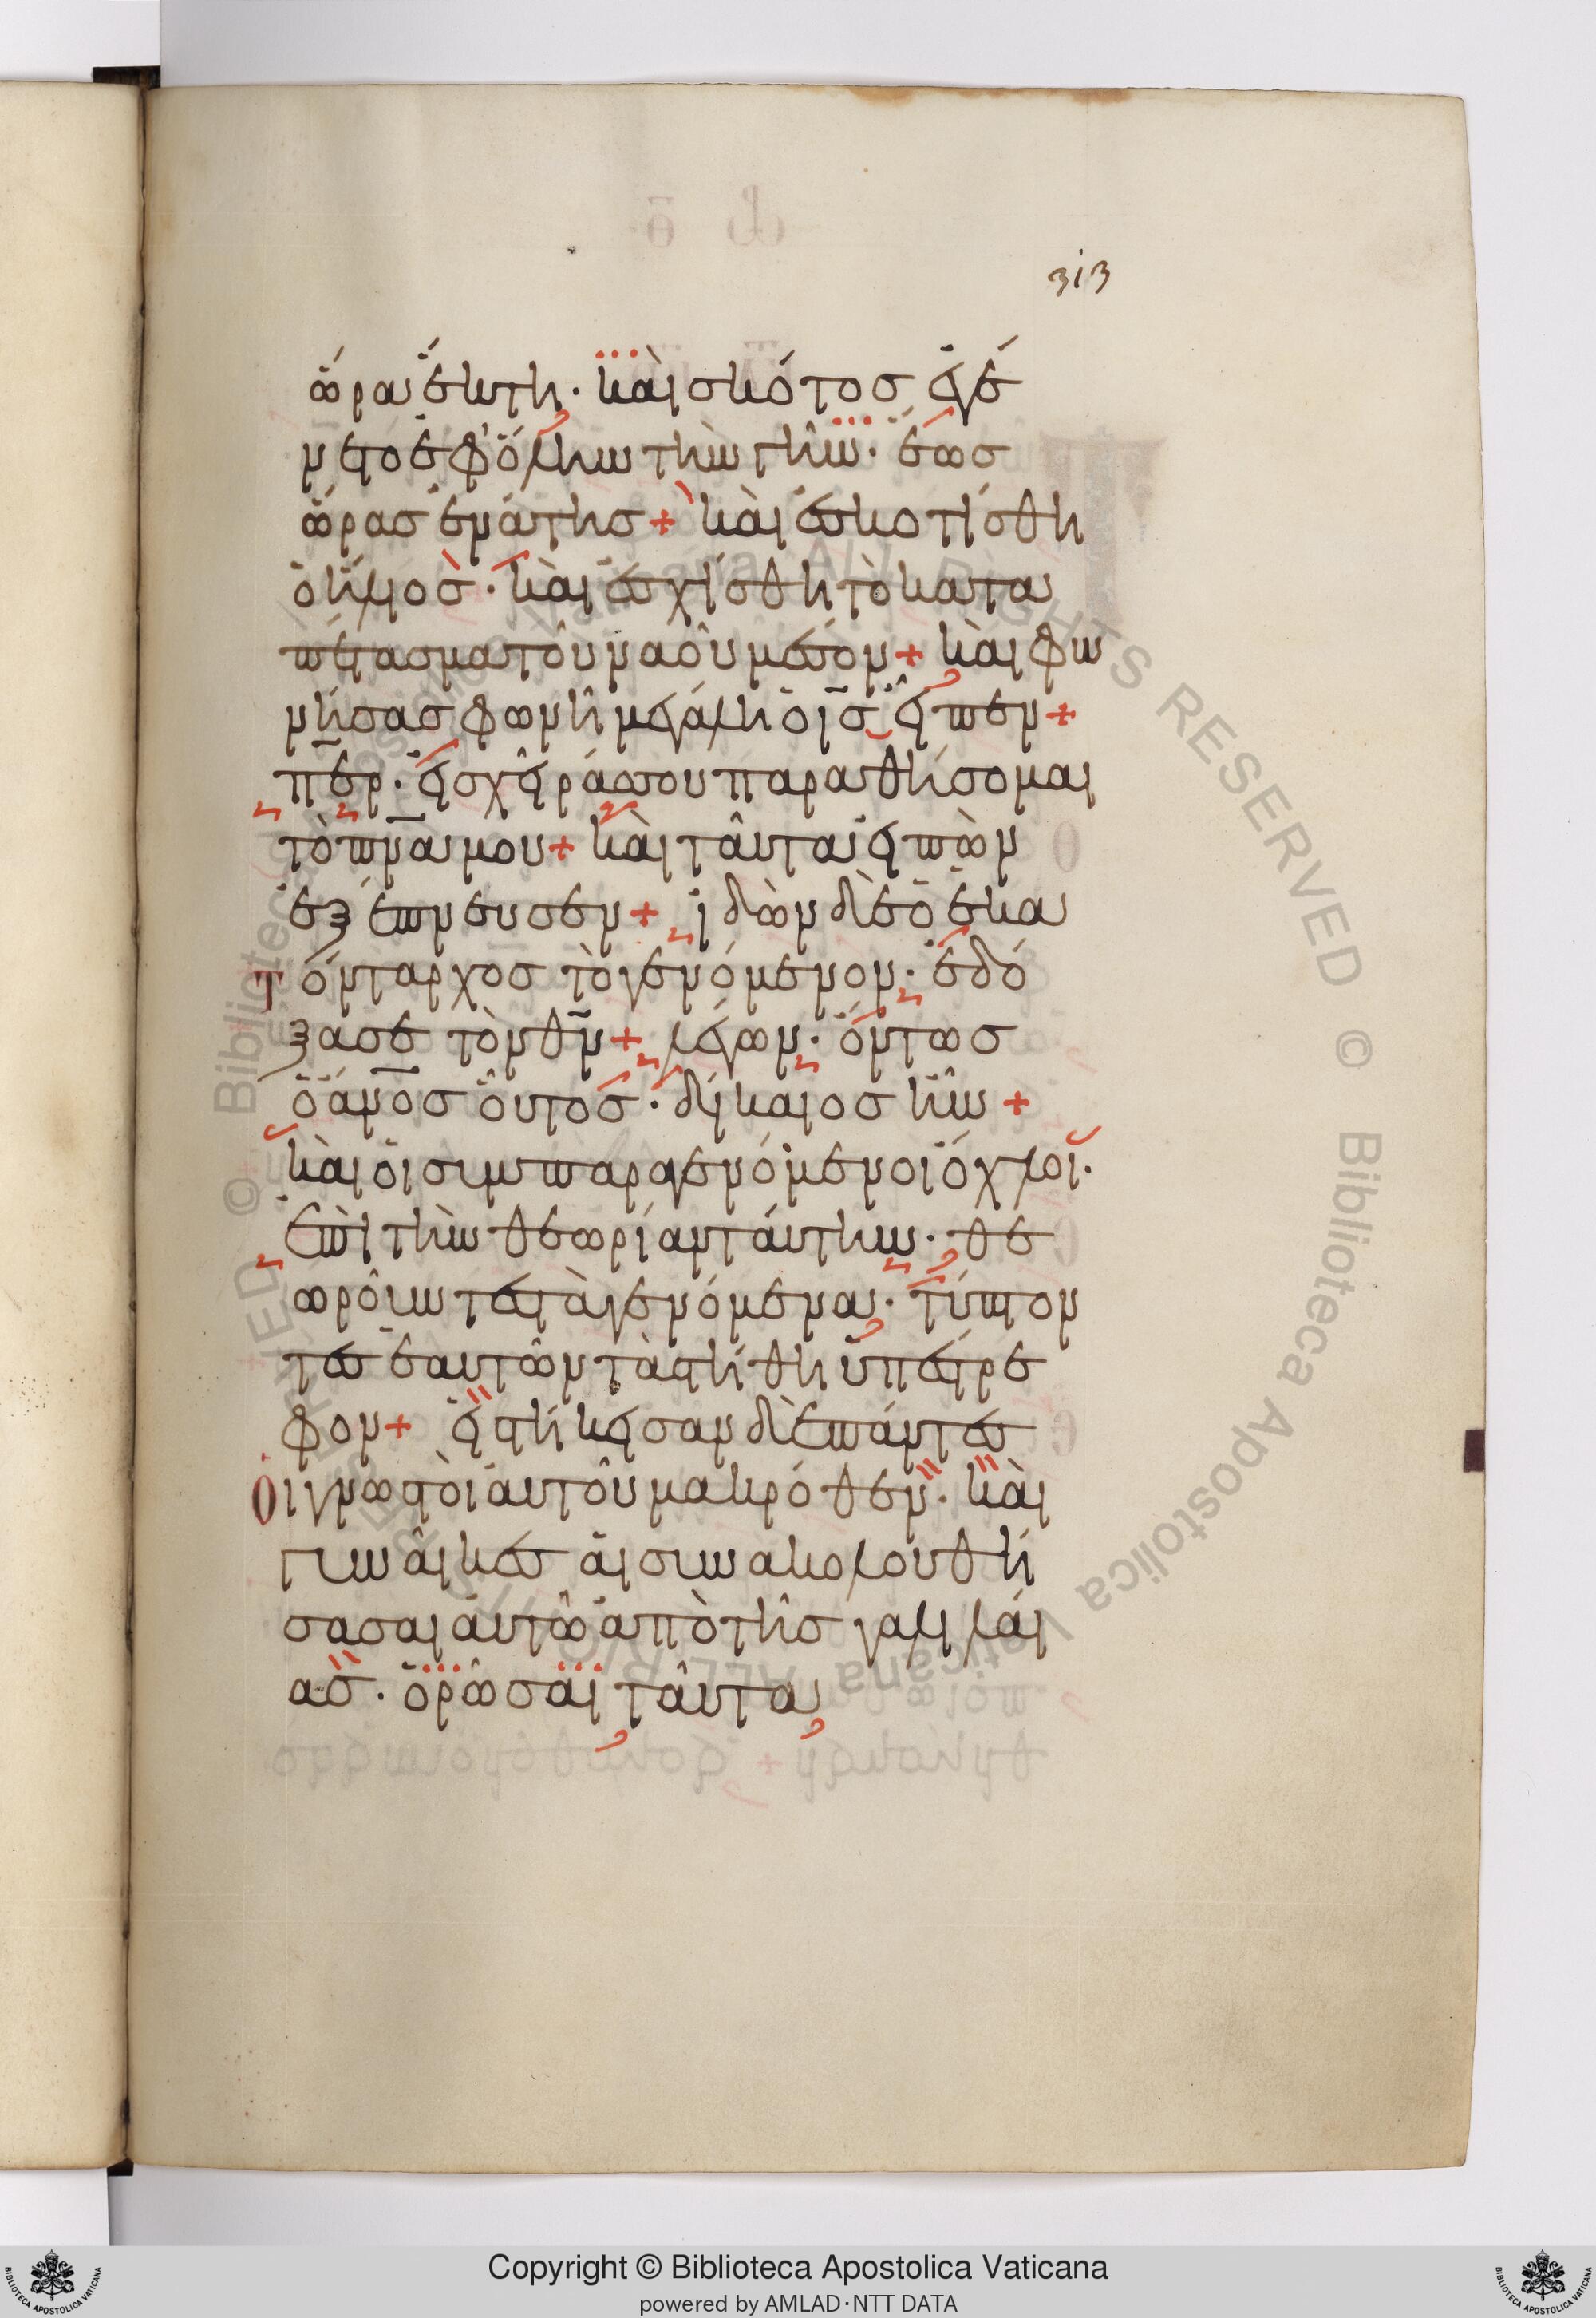 313
ὥρα ἕκτη· καὶ σκότος ἐγέ
νετο ἐφ' ὅλην τὴν γῆν· ἕως
ὥρας ἐνάτης + καὶ ἐσκοτίσθη
ὁ ἥλιος· καὶ ἐσχίσθη τὸ κατα
πέτασμα τοῦ ναοῦ μέσον + καὶ φω
νήσας φωνῇ μεγάλῃ ὁ ις εἶπεν +
περ· εἰς χεῖράς σου παραθήσομαι
τὸ πνα μου + καὶ ταῦτα εἰπὼν
ἐξέπνευσεν + ἰδὼν δὲ ὁ ἑκα
τόνταρχος τὸ γενόμενον· ἐδό
ξασε τὸν θν + λέγων· ὄντως
ὁ ανος οὗτος· δίκαιος ἦν +
καὶ οἱ συμπαραγενόμενοι ὄχλοι·
ἐπὶ τὴν θεωρίαν ταύτην· θε
ωροῦντες τὰ γενόμενα· τύπτον
τες ἑαυτῶν τὰ στήθη ὑπέστρε
φον + εἱστήκεσαν δὲ πάντες
οἱ γνωστοὶ αὐτοῦ μακρόθεν· καὶ
γυναῖκες αἱ συνακολουθή
σασαι αὐτῷ ἀπὸ τῆς γαλιλαί
ας· ὁρῶσαι ταῦτα
Copyright © Biblioteca Apostolica Vaticana
powered by AMLAD·NTT DATA